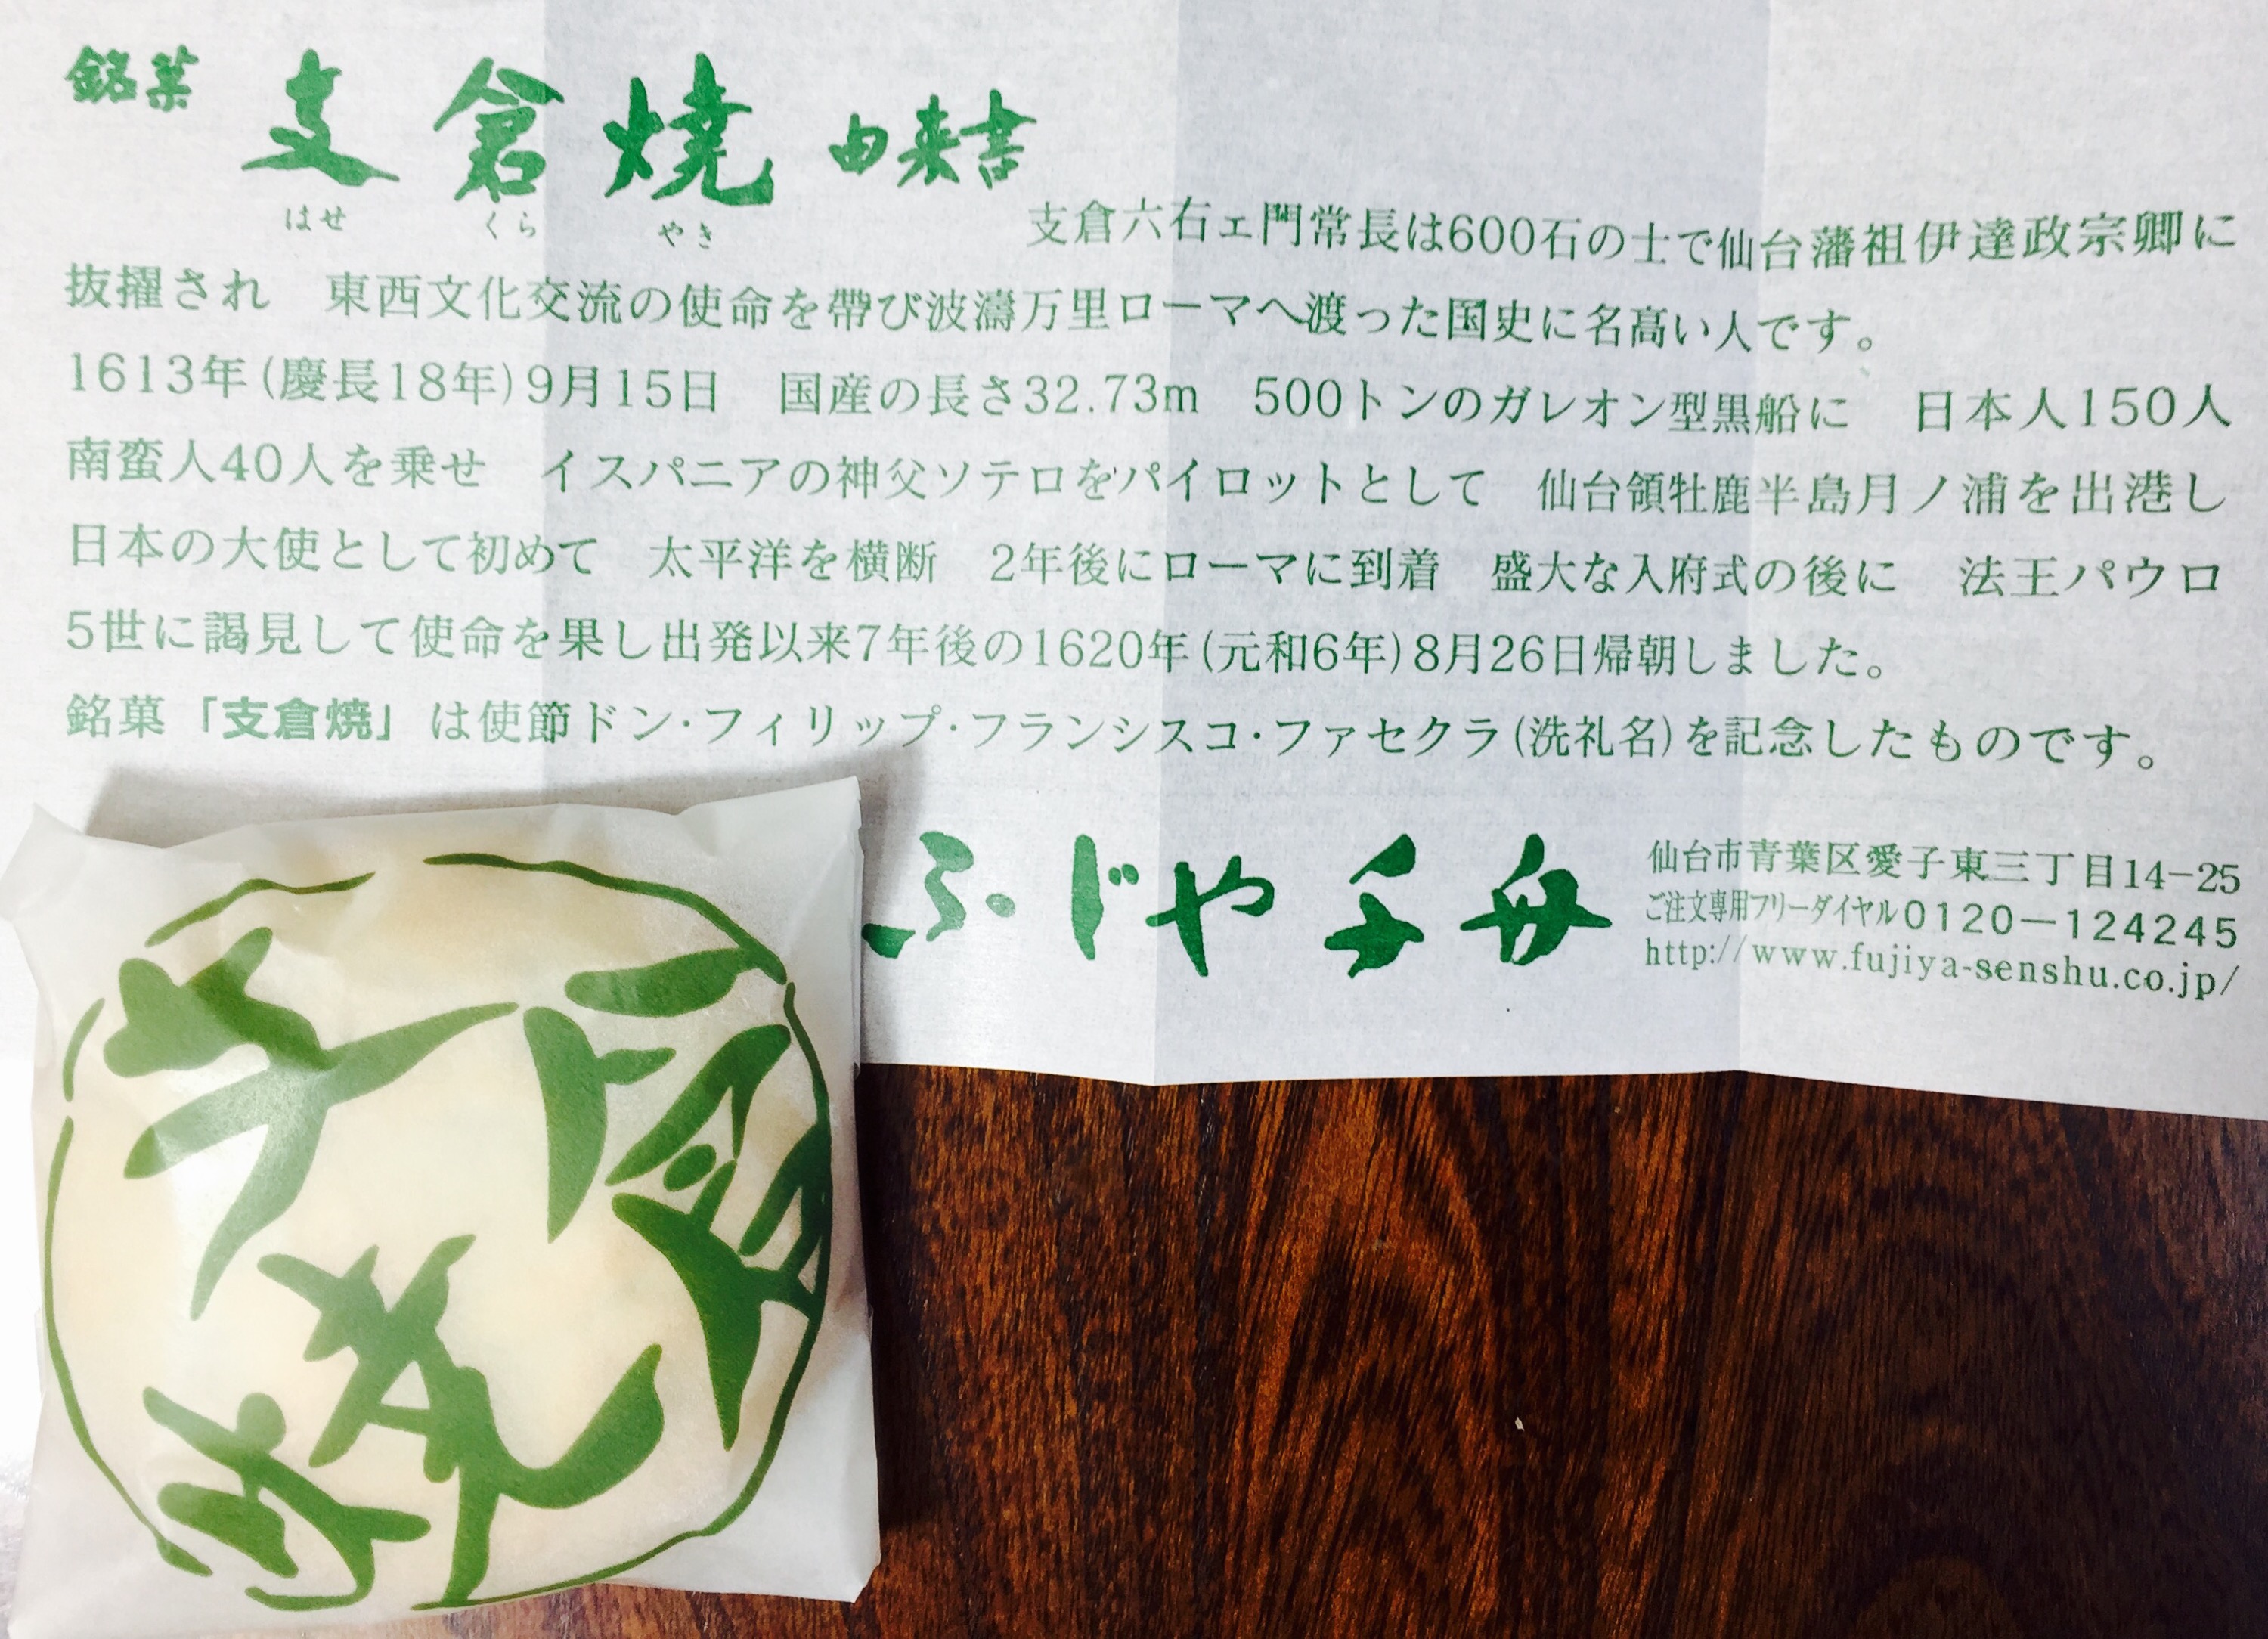 銘菓 支倉焼 由来書
はせ くら やき
支倉六右ェ門常長は600石の士で仙台藩祖伊達政宗卿に
抜擢され　東西文化交流の使命を帶び波濤万里ローマへ渡った国史に名高い人です。
1613年(慶長18年)9月15日　国産の長さ32.73m　500トンのガレオン型黒船に　日本人150人
南蛮人40人を乗せ　イスパニアの神父ソテロをパイロットとして　仙台領牡鹿半島月ノ浦を出港し
日本の大使として初めて　太平洋を横断　2年後にローマに到着　盛大な入府式の後に　法王パウロ
5世に謁見して使命を果し出発以来7年後の1620年(元和6年)8月26日帰朝しました。
銘菓「支倉焼」は使節ドン・フィリップ・フランシスコ・ファセクラ(洗礼名)を記念したものです。
ふじや千舟
仙台市青葉区愛子東三丁目14-25
ご注文専用フリーダイヤル0120-124245
http://www.fujiya-senshu.co.jp/
支倉焼